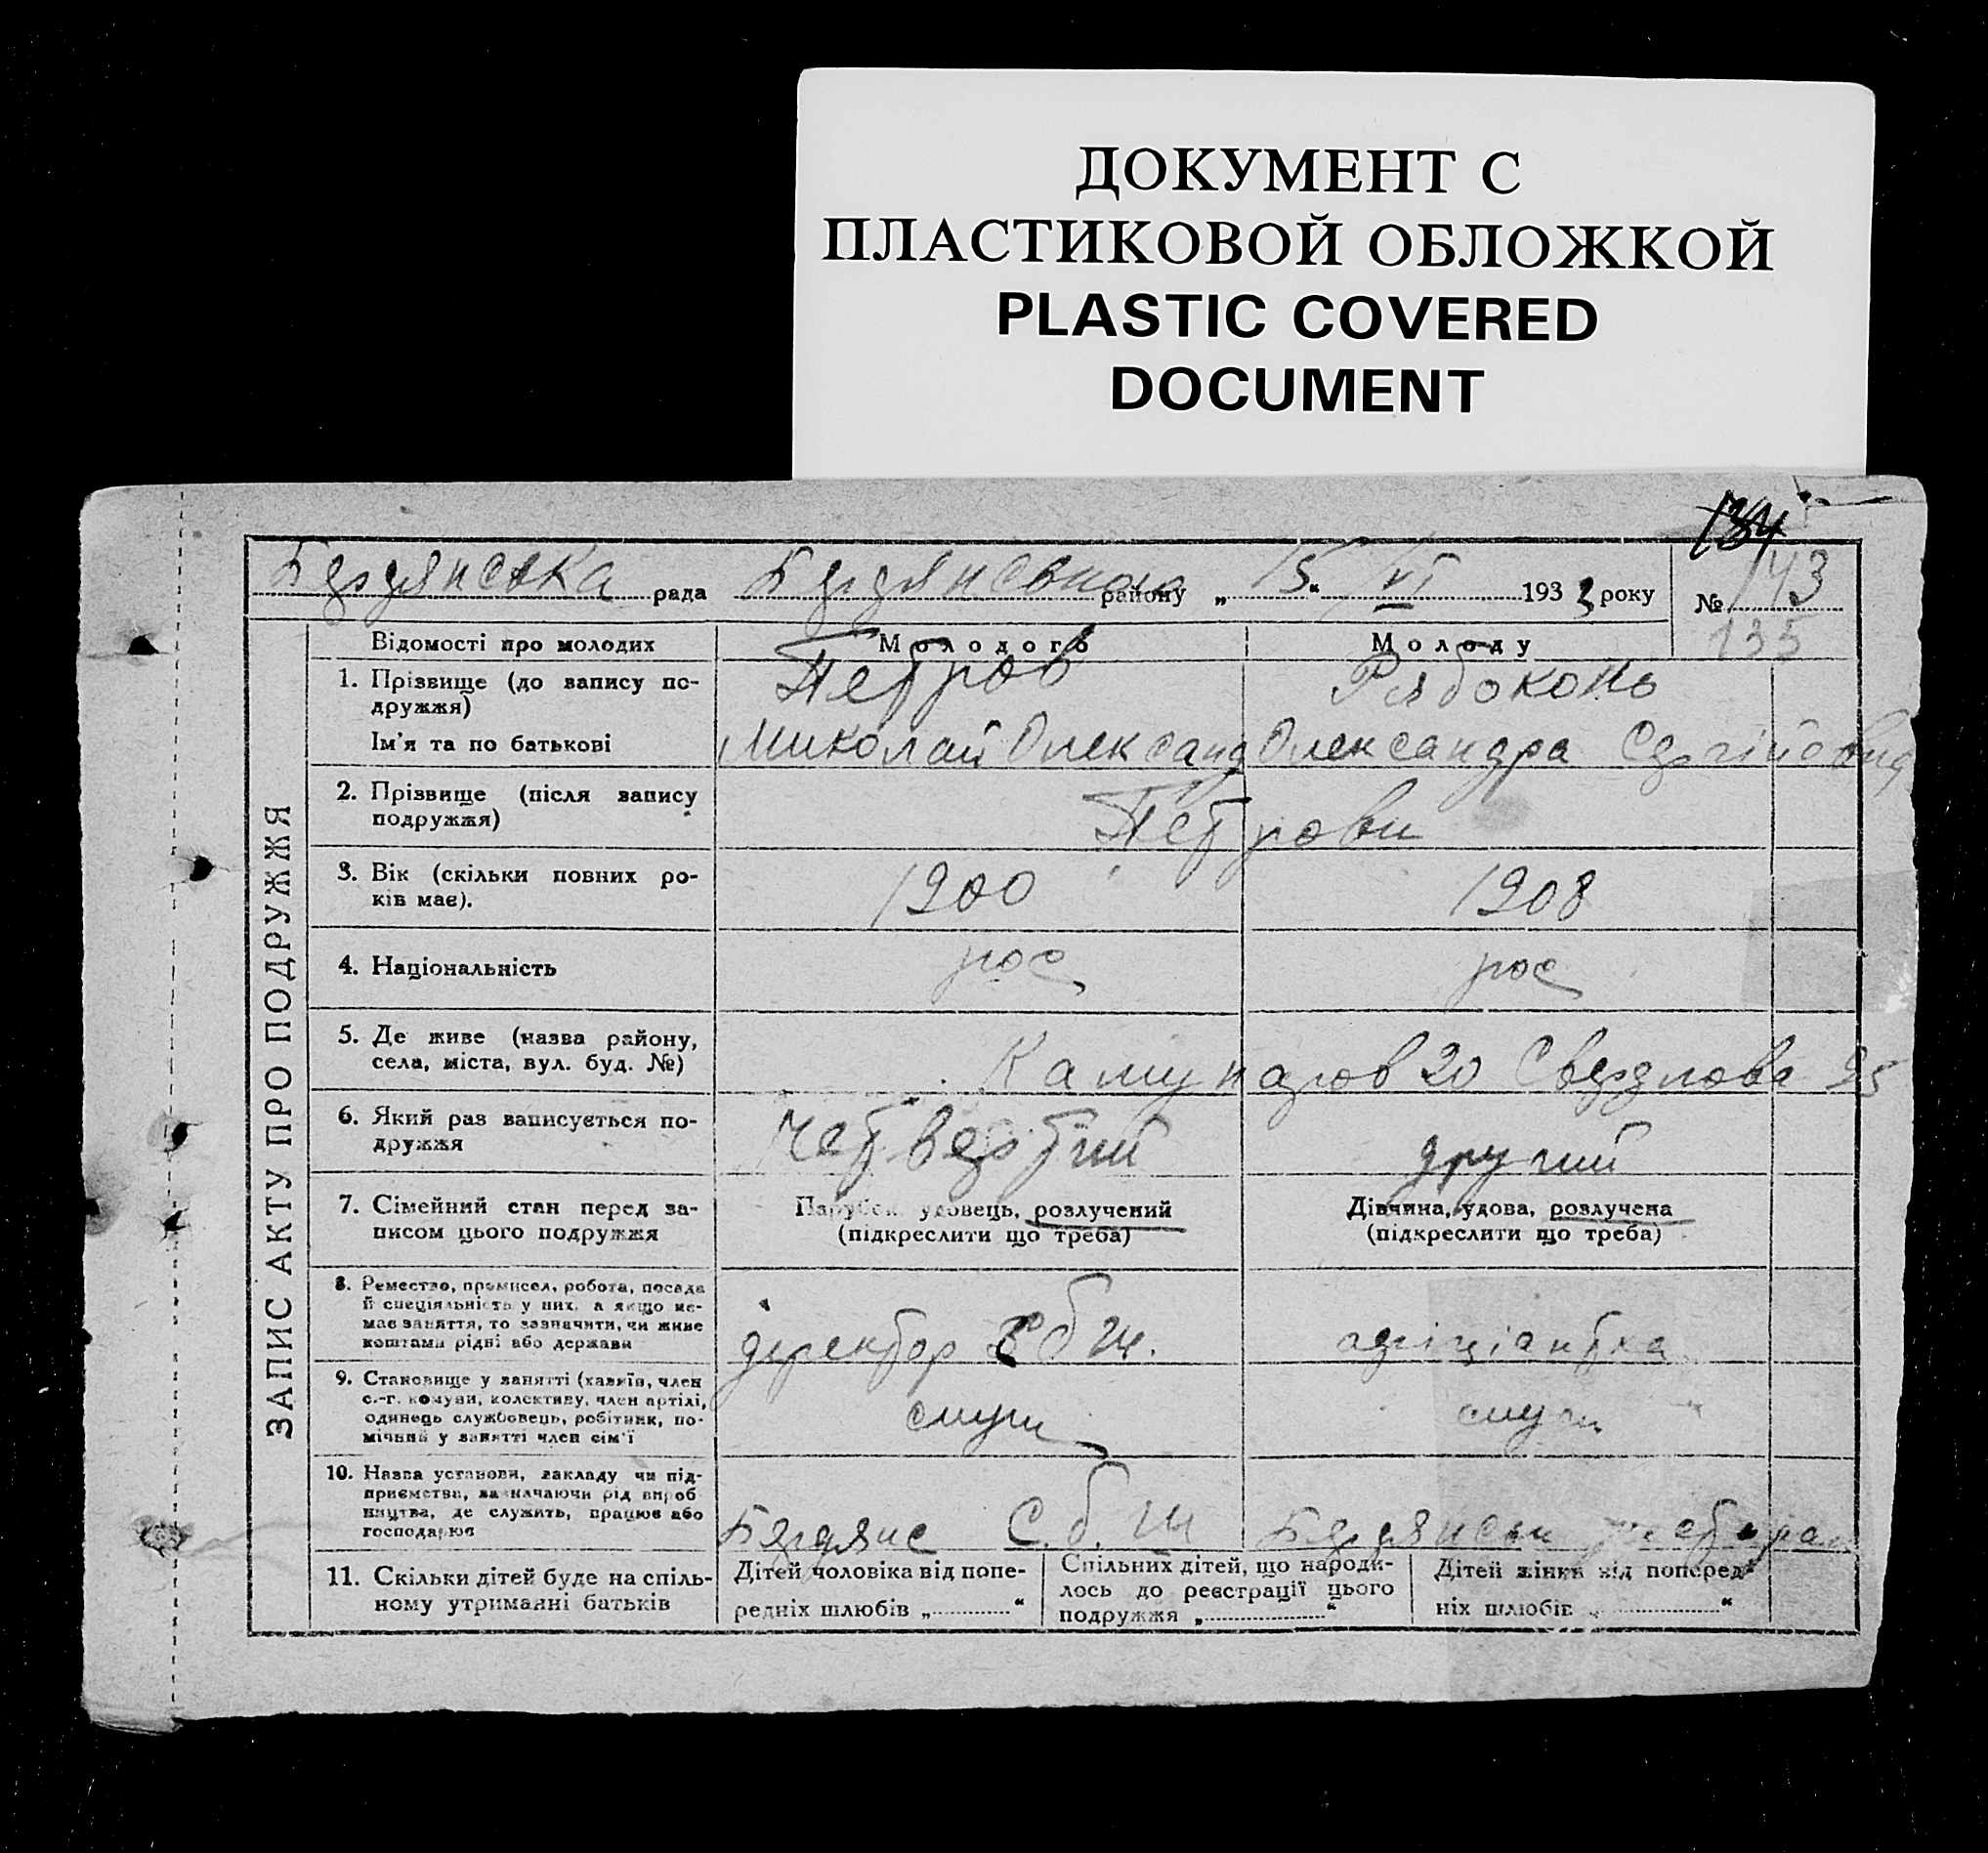 ДОКУМЕНТ С
ПЛАСТИКОВОЙ ОБЛОЖКОЙ
PLASTIC COVERED
DOCUMENT
134
Бердянська рада Бердянського району „15“ VI 1933 року № 143
135
ЗАПИС АКТУ ПРО ПОДРУЖЖЯ
Відомості про молодих Молодого Молоду
1. Прізвище (до запису по-
дружжя) Петров Рябоконь
Ім'я та по батькові Миколай Олександ Олександра Сергійовна
2. Прізвище (після запису
подружжя) Петрови
3. Вік (скільки повних ро-
ків має). 1900 1908
4. Національність рос рос
5. Де живе (назва району,
села, міста, вул. буд. №) Камунаров 20 Свердлова 25
6. Який раз записується по-
дружжя четвертий другий
7. Сімейний стан перед за-
писом цього подружжя
Парубок, удовець, розлучений
(підкреслити що треба)
Дівчина, удова, розлучена
(підкреслити що треба)
8. Ремество, промисел, робота, посада
й спеціяльність у них, а якщо не-
має заняття, то зазначити, чи живе
коштами рідні або держави
діректор
9. Становище у занятті (хазяїн, член
с.-г. комуни, колективу, член артілі,
одинець службовець, робітник, по-
мічний у занятті член сім'ї
служ служ
10. Назва установи, закладу чи під-
приємства, зазначаючи рід вироб-
ництва, де служить, працює або
господарює
Бердянс С. б. Бердянськ
11. Скільки дітей буде на спіль-
ному утриманні батьків
Дітей чоловіка від попе-
редніх шлюбів „ “
Спільних дітей, що народи-
лось до реєстрації цього
подружжя „ “
Дітей жінки від поперед-
ніх шлюбів „ “